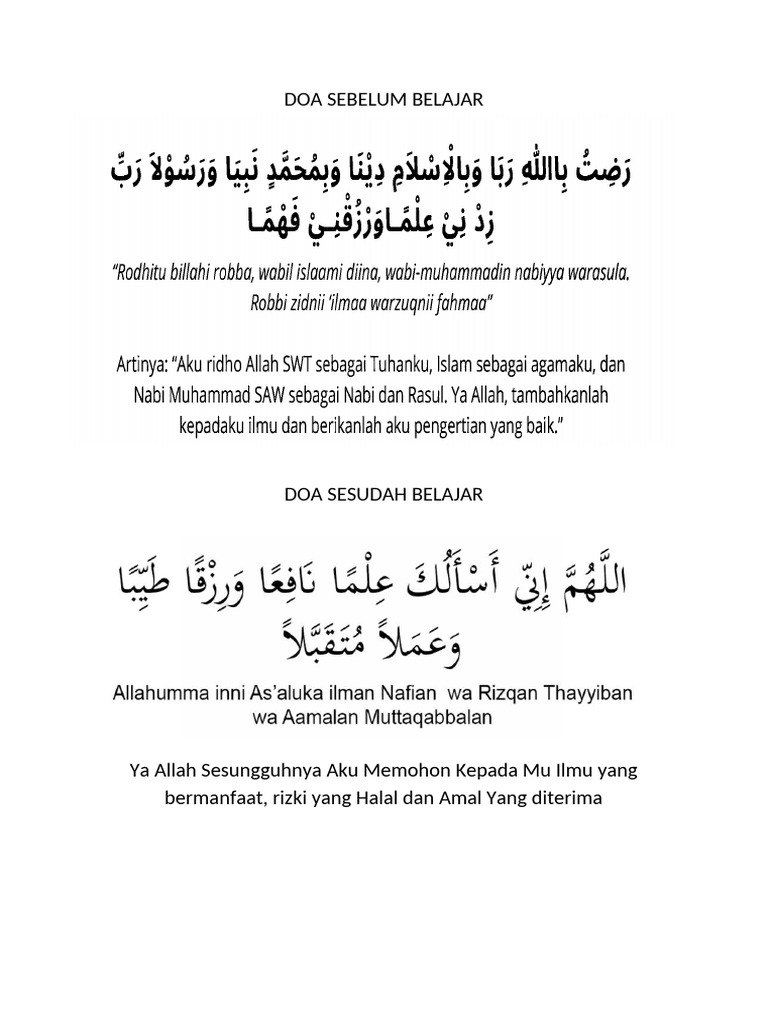 DOA SEBELUM BELAJAR
رَضِتُ بِاللهِ رَبَا وَبِالْاِسْلَامِ دِيْنَا وَبِمُحَمَّدٍ نَبِيَا وَرَسُوْلاَ رَبِّ
زِدْ نِيْ عِلْمًـاوَرْزُقْنِـيْ فَهْمًـا
“Rodhitu billahi robba, wabil islaami diina, wabi-muhammadin nabiyya warasula.
Robbi zidnii ‘ilmaa warzuqnii fahmaa”
Artinya: “Aku ridho Allah SWT sebagai Tuhanku, Islam sebagai agamaku, dan
Nabi Muhammad SAW sebagai Nabi dan Rasul. Ya Allah, tambahkanlah
kepadaku ilmu dan berikanlah aku pengertian yang baik.”
DOA SESUDAH BELAJAR
اللَّهُمَّ إِنِّي أَسْأَلُكَ عِلْمًا نَافِعًا وَرِزْقًا طَيِّبًا
وَعَمَلاً مُتَقَبَّلاً
Allahumma inni As’aluka ilman Nafian wa Rizqan Thayyiban
wa Aamalan Muttaqabbalan
Ya Allah Sesungguhnya Aku Memohon Kepada Mu Ilmu yang
bermanfaat, rizki yang Halal dan Amal Yang diterima